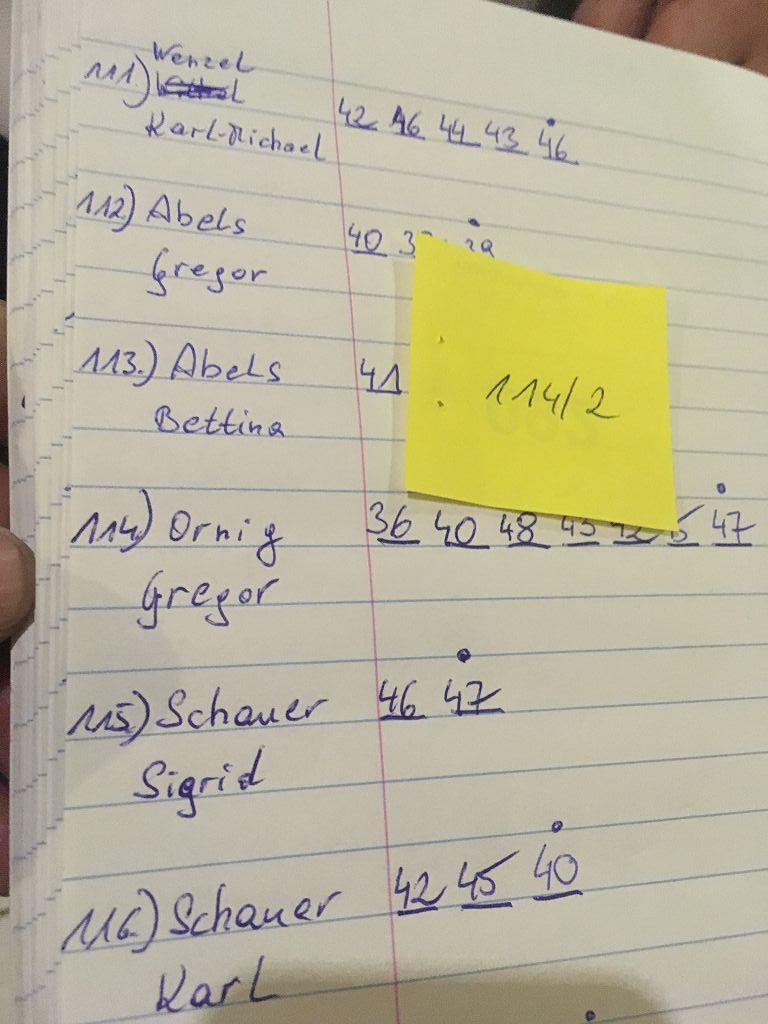 Wenzel
111.)
Karl-Michael 42 46 44 43 46
112) Abels 40
Gregor
113.) Abels 41
Bettina
114/2
114) Ornig 36 40 48 45 42 47
Gregor
115) Schauer 46 47
Sigrid
116.) Schauer 42 45 40
Karl